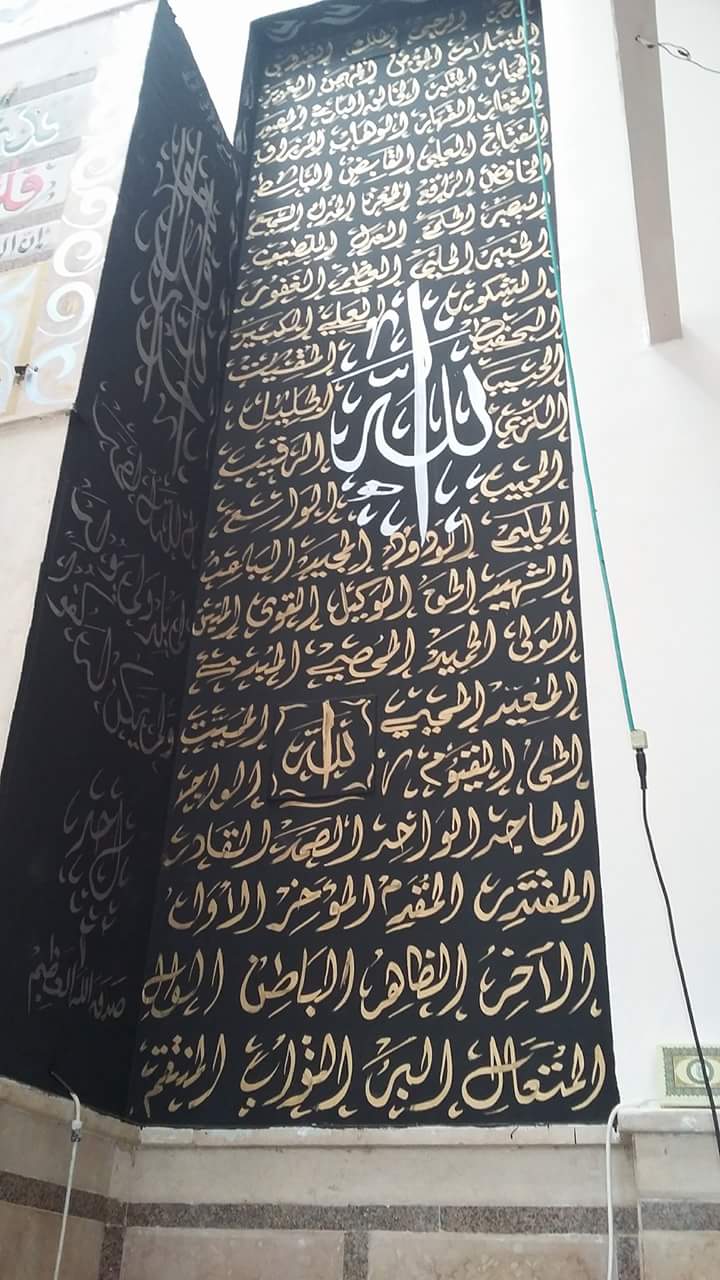 الرحمن الرحيم الملك القدوس
السلام المؤمن المهيمن العزيز
الجبار المتكبر الخالق البارئ المصور
الغفار القهار الوهاب الرزاق
الفتاح العليم القابض الباسط
الخافض الرافع المعز المذل السميع
البصير الحكم العدل اللطيف
الخبير الحليم العظيم الغفور
الشكور العلي الكبير
الحفيظ المقيت
الحسيب الجليل
الله
الكريم الرقيب
المجيب الواسع
الحكيم الودود المجيد الباعث
الشهيد الحق الوكيل القوي المتين
الولى الحميد المحصي المبدئ
المعيد المحيي المميت
الله
الحى القيوم الواجد
الماجد الواحد الصمد القادر
المقتدر المقدم المؤخر الأول
الآخر الظاهر الباطن الوالي
المتعال البر التواب المنتقم
ولم يكن له كفوا
أحد
صدق الله العظيم